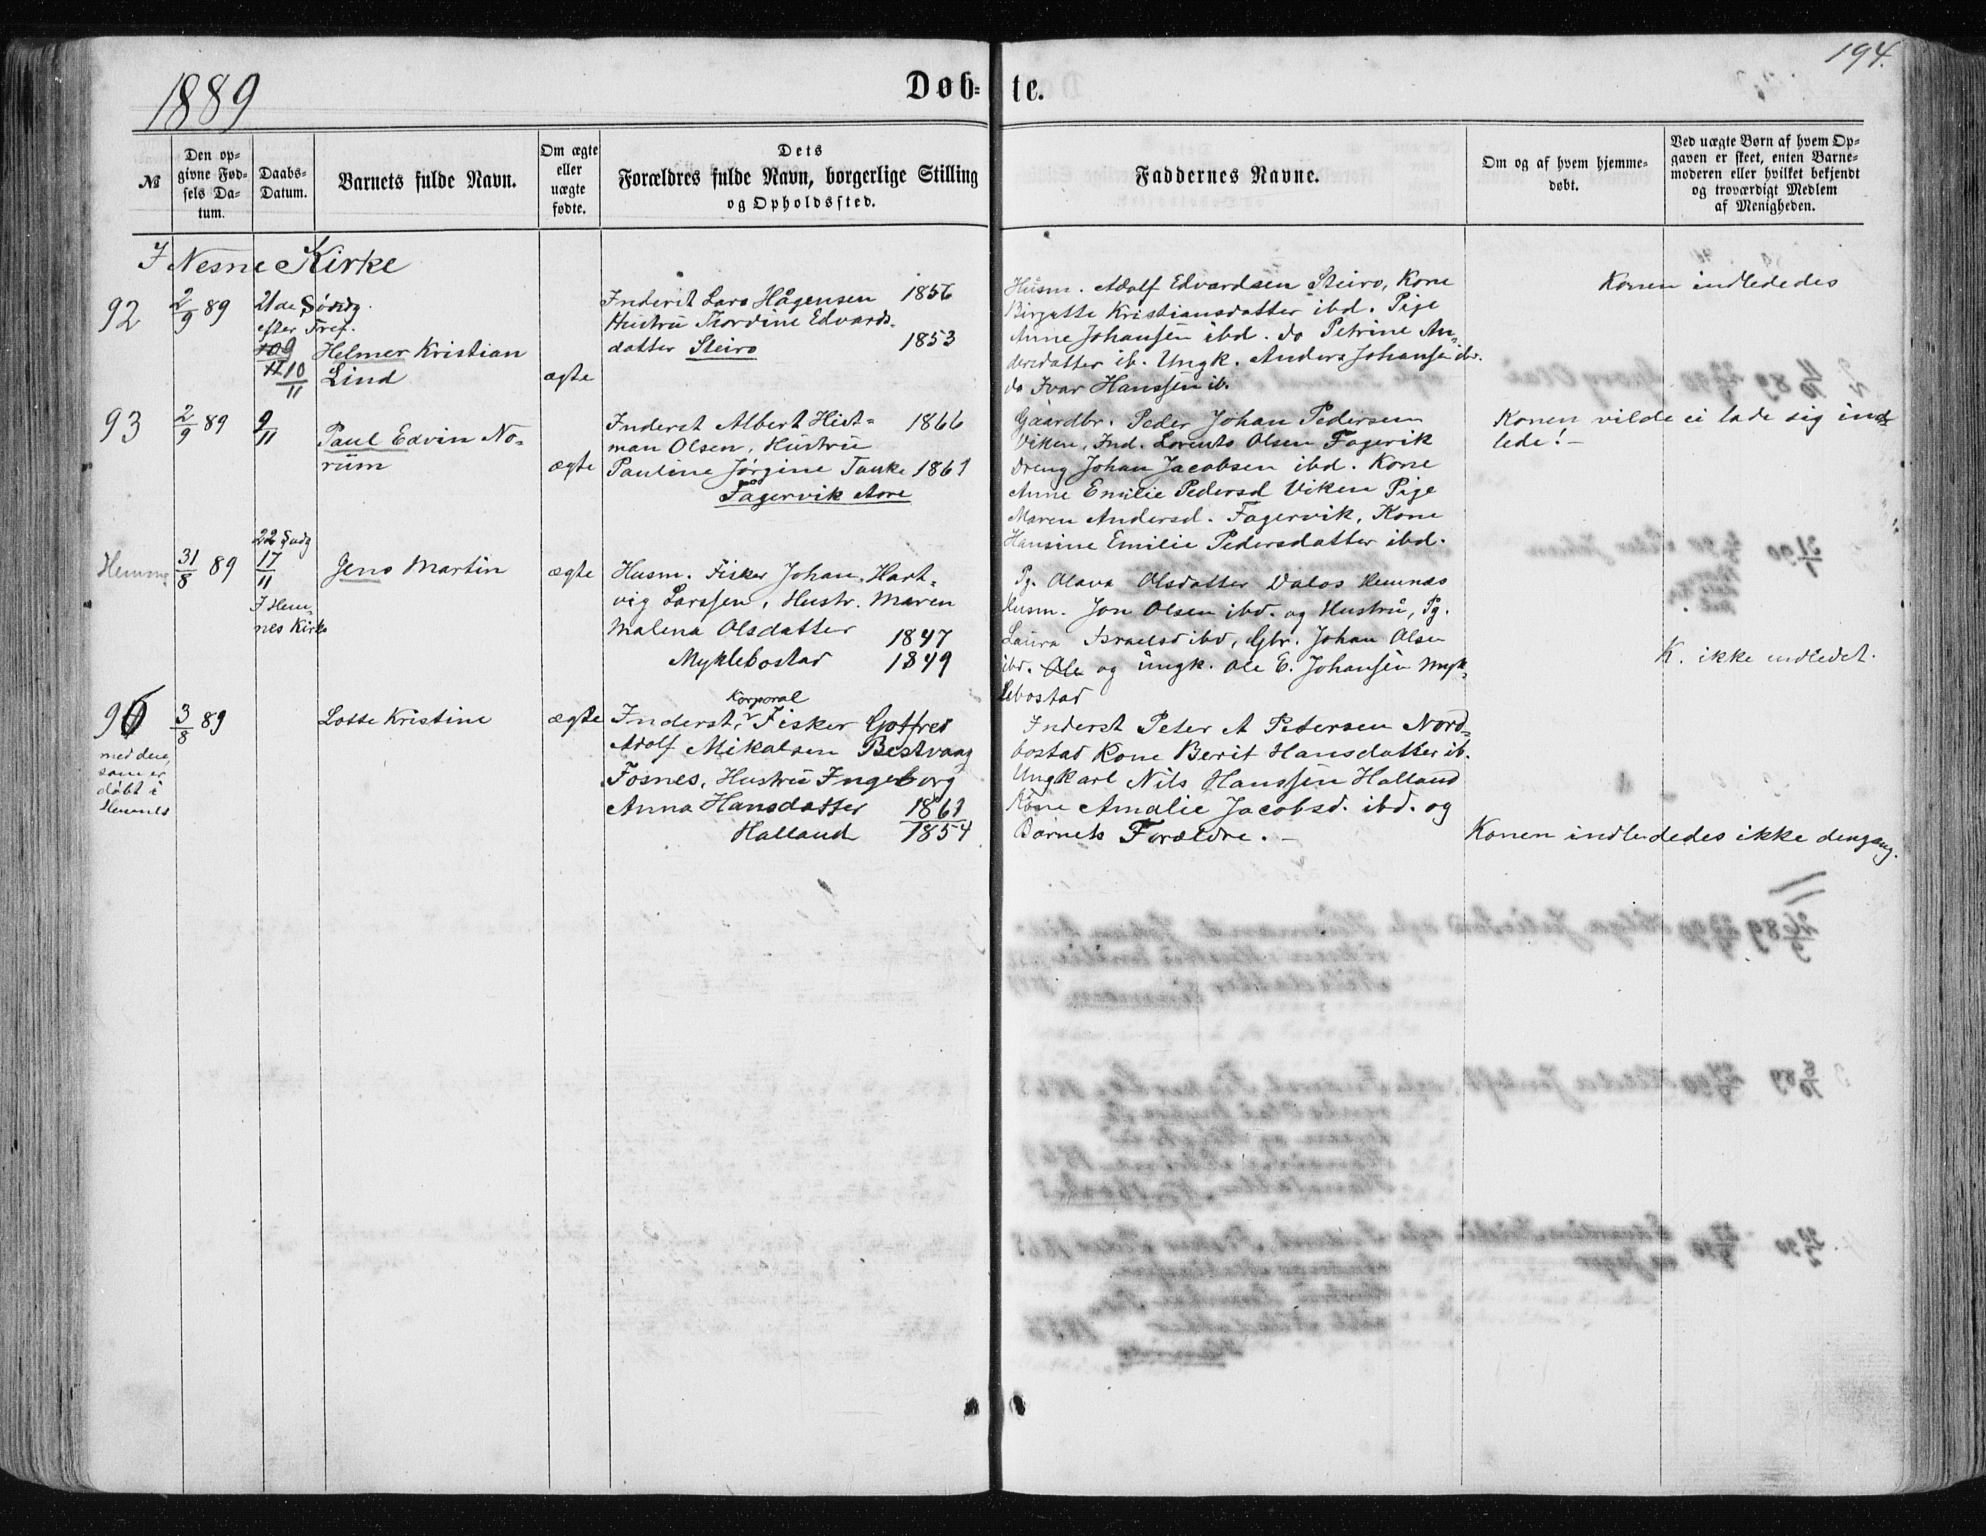 194.
1889
Døb-te.
№
Den op-
givne Fød-
sels Da-
tum.
Daabs-
Datum.
Barnets fulde Navn.
Om ægte
eller
uægte
fødte.
Dets
Forældres fulde Navn, borgerlige Stilling
og Opholdssted.
Faddernes Navne.
Om og af hvem hjemme-
døbt.
Ved uægte Børn af hvem Op-
gaven er skeet, enten Barne-
moderen eller hvilket bekjendt
og troværdigt Medlem
af Menigheden.
I Nesne Kirke
92
2/9 89
21de Søndg.
efter Tref.
10/11
Helmer Kristian
Lind
ægte
Inderst Lars Hågensen 1856
Hustru Thordine Edvards-
datter Steiro 1853
Husm. Adolf Edvardsen Steiro, Kone
Birgitte Kristiansdatter ibd. Pige
Anne Johansen ibd. do Petrine An-
dersdatter ib. Ungk. Anders Johansen ibd.
do Ivar Hanssen ib.
Konen indlededes
93
2/9 89
9/11
Paul Edvin No-
rum
ægte
Inderst Albert Hist-
man Olsen, Hustru 1866
Pauline Jørgine Tanke 1861
Fagervik Aore
Gaardbr. Peder Johan Pedersen
Viken, Ind. Lorents Olsen Fagervik
Dreng Johan Jacobsen ibd. Kone
Anne Emilie Pedersd Viken Pige
Maren Andersd. Fagervik, Kone
Hansine Emilie Pedersdatter ibd.
Konen vilde ei lade sig ind-
lede! -
Hemne
31/8 89
22 Sndg
17/11
I Hem-
nes Kirke
Jens Martin
ægte
Husm. Fisker Johan Hart-
vig Larssen, Hustr. Maren
Malena Olsdatter 1847
Myklebostad 1849
Pg. Olava Olsdatter Valos Hemnæs
Husm. Jon Olsen ibd. og Hustru, Pg.
Laura Israelsd ibd, Gbr. Johan Olsen
ibd. Ole og ungk. Ole E. Johansen Myk-
lebostad
K. ikke indledet.
96
med den,
som er
døbt i
Hemnes
3/8 89
Lotte Kristine
ægte
Korporal
Inderst, Fisker Gotfred
Adolf Mikalsen Bestvaag
Fosnes, Hustru Ingeborg
Anna Hansdatter 1861
Halland 1854
Inderst Peter A Petersen Nord-
bostad Kone Berit Hansdatter ib.
Ungkarl Nils Hanssen Halland
Kone Amalie Jacobsd. ibd. og
Barnets Forældre. -
Konen indlededes ikke dengang.